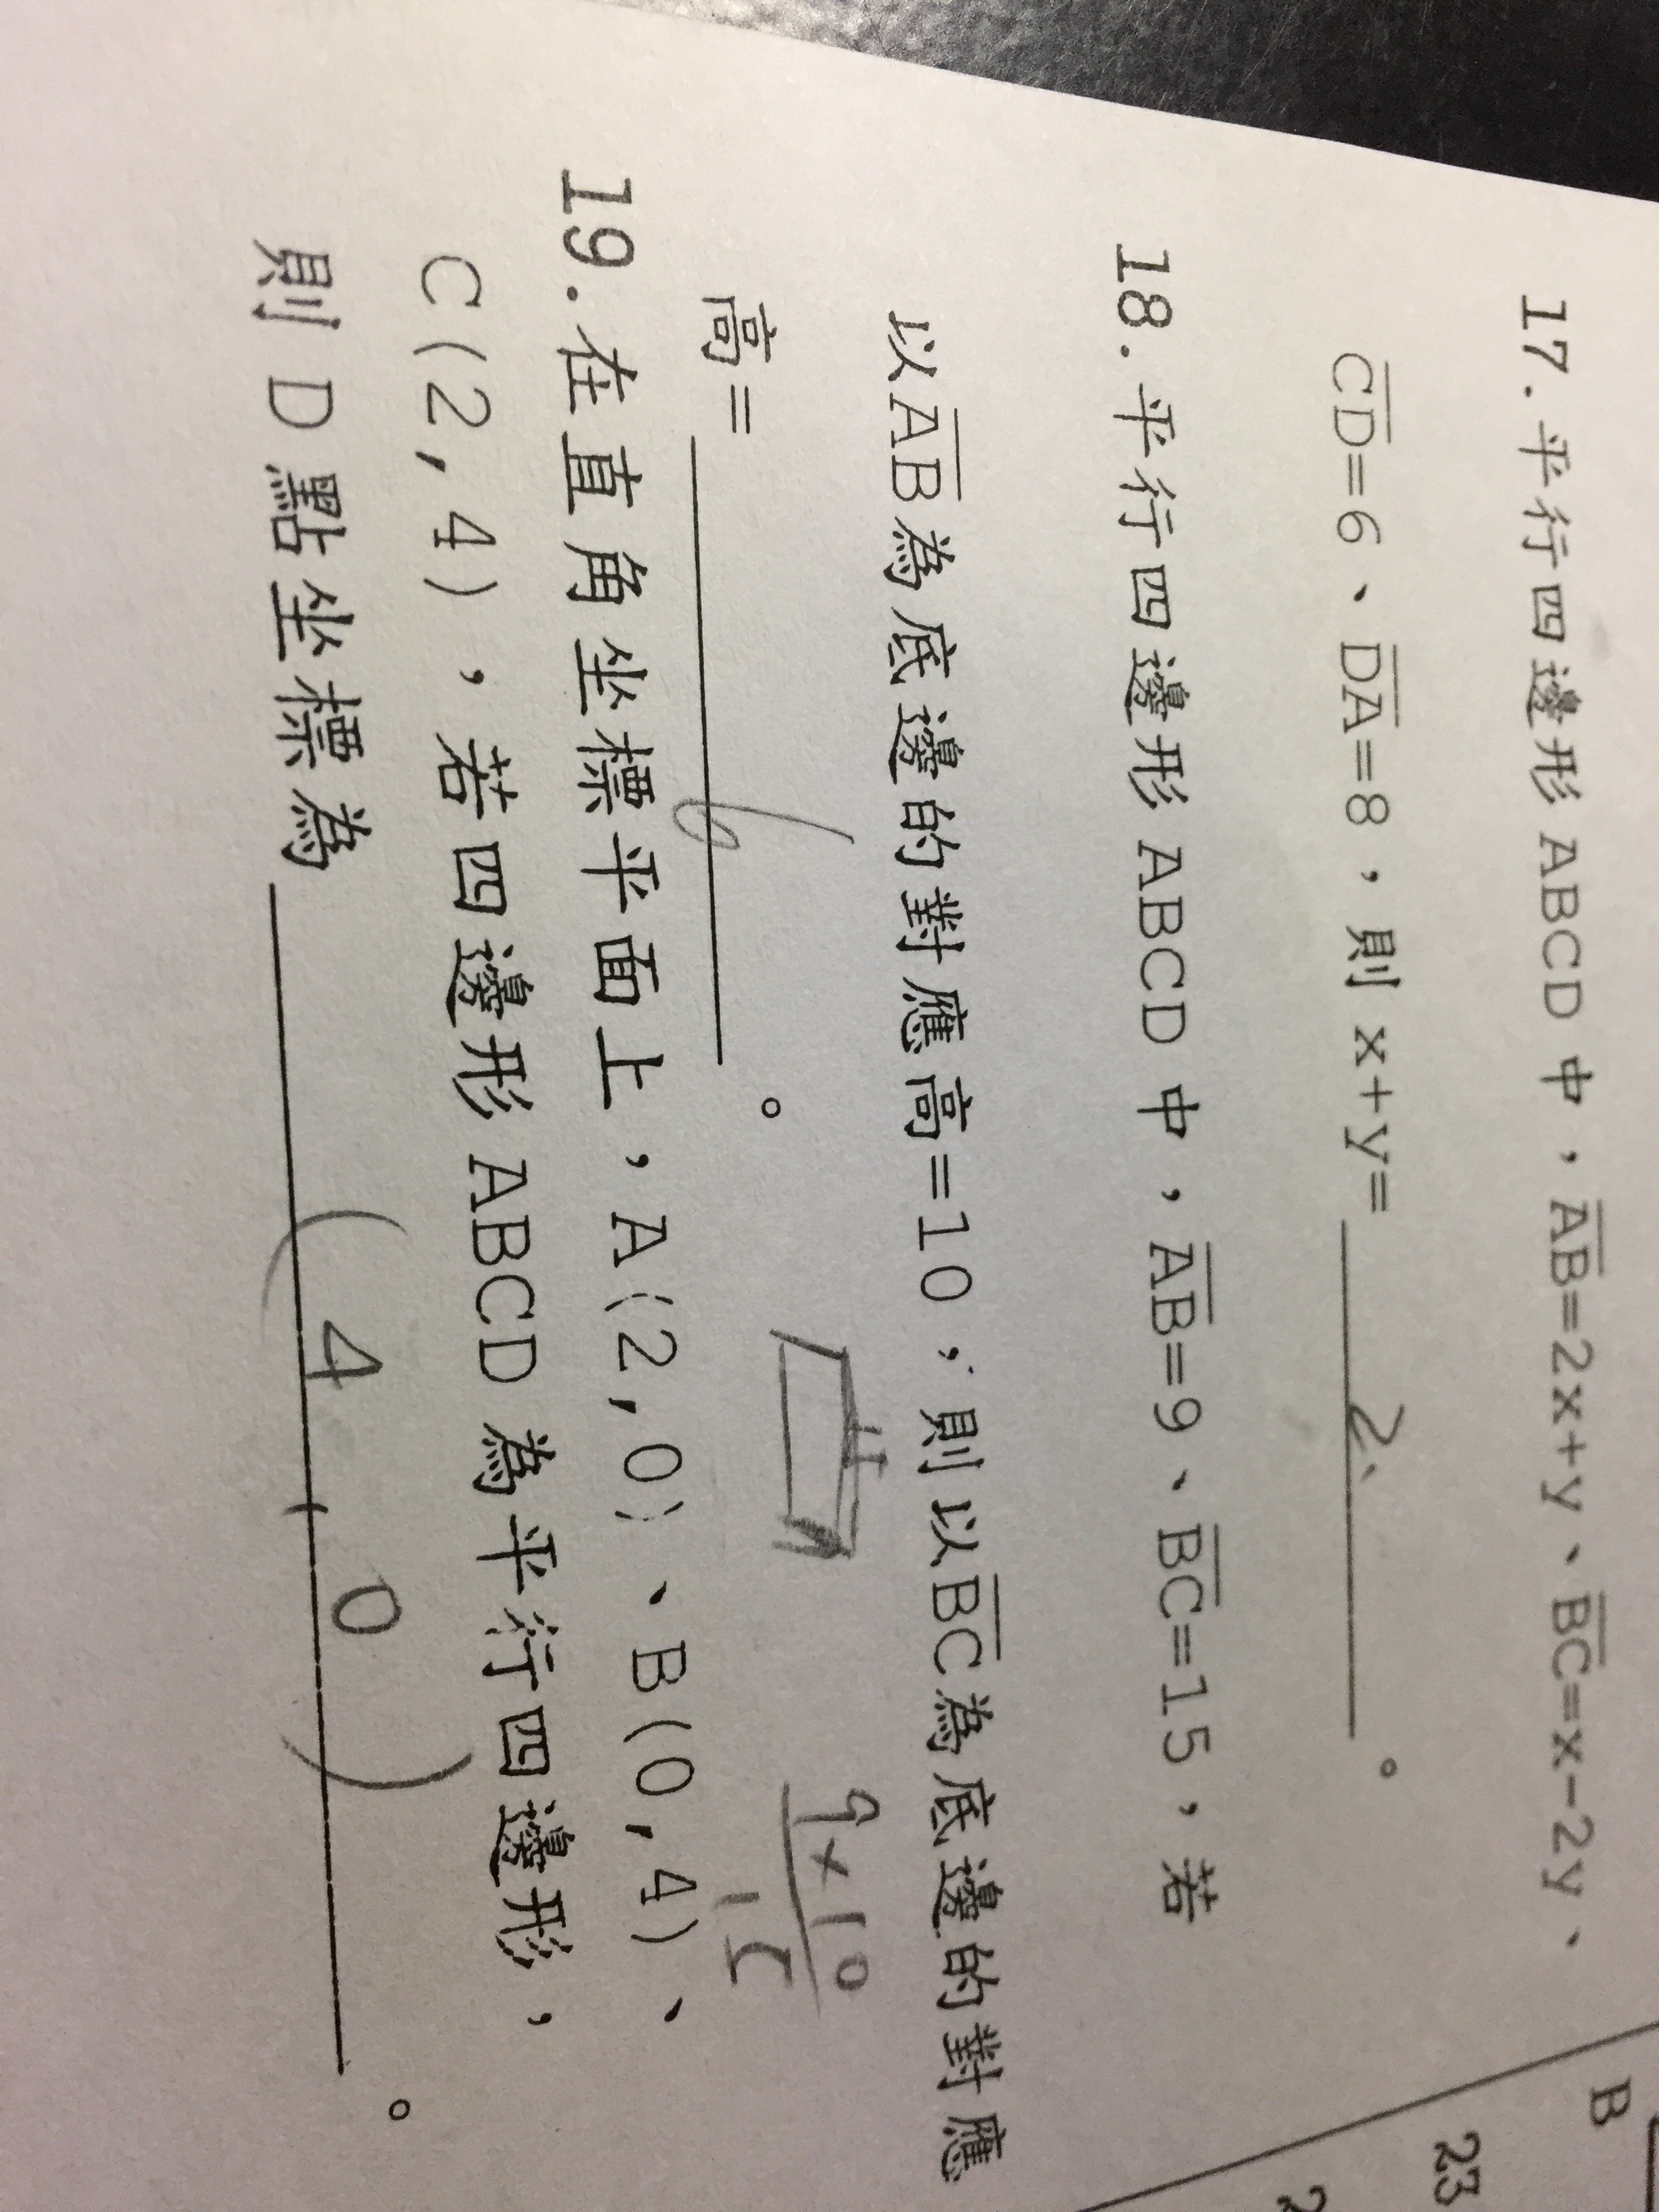 17.平行四邊形 ABCD 中，AB=2x+y、BC=x-2y、
CD=6、DA=8，則 x+y= 2
18.平行四邊形 ABCD 中，AB=9、BC=15，若
以AB為底邊的對應高=10，則以BC為底邊的對應
高= 6 。
9×10
15
19.在直角坐標平面上，A(2,0)、B(0,4)、
C(2,4)，若四邊形 ABCD 為平行四邊形，
則 D 點坐標為 (4,0) 。
B
23
2